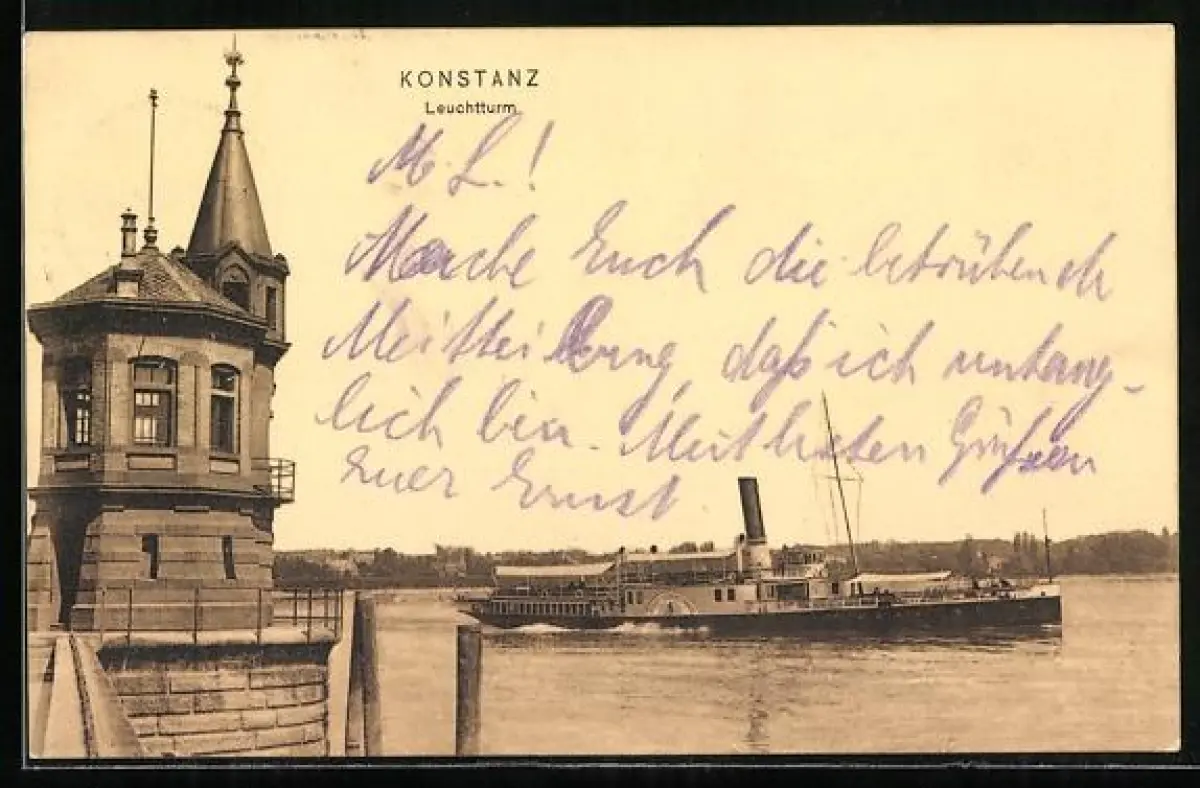 KONSTANZ
Leuchtturm
M. L.!
Mache Euch die betrübende
Mitteilung, daß ich
lich bin. Mit besten Grüßen
Euer Ernst